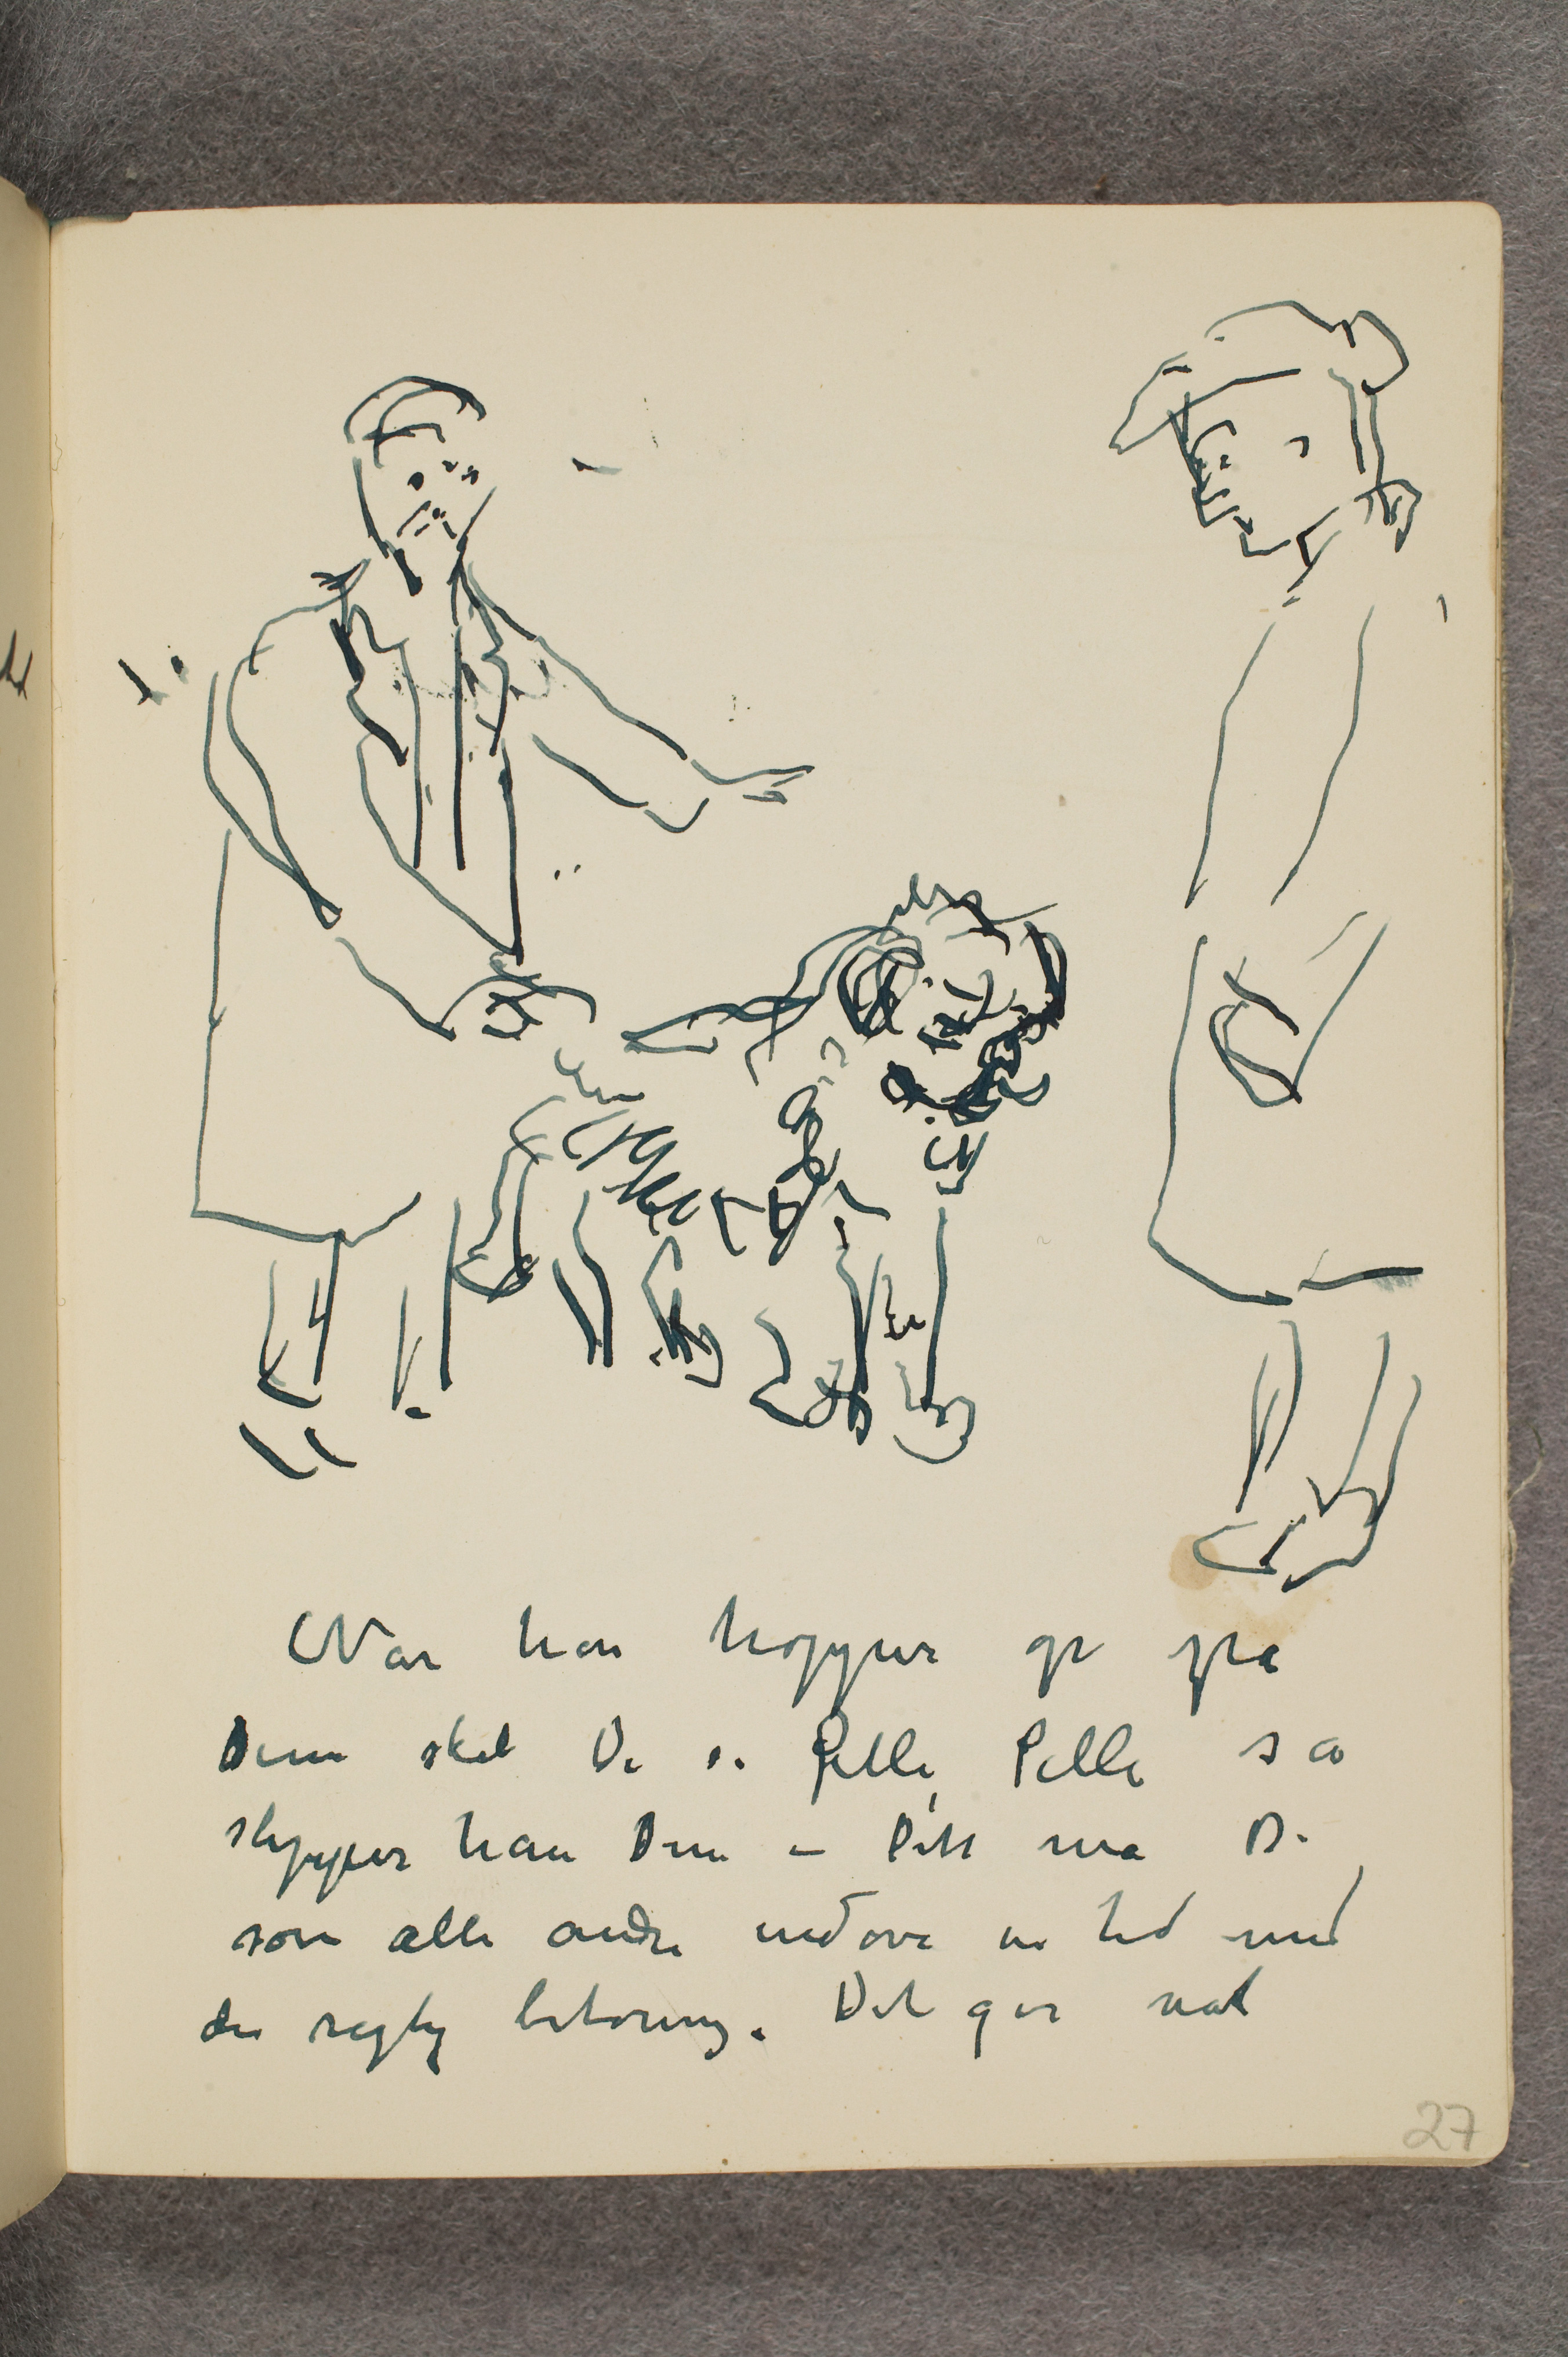 Når han hopper op på
Dem skal De si Pelle, Pelle så
slipper han Dem – Dett må De
som alle andre indøve en tid med
den rigtig betoning. Det gør nok
27